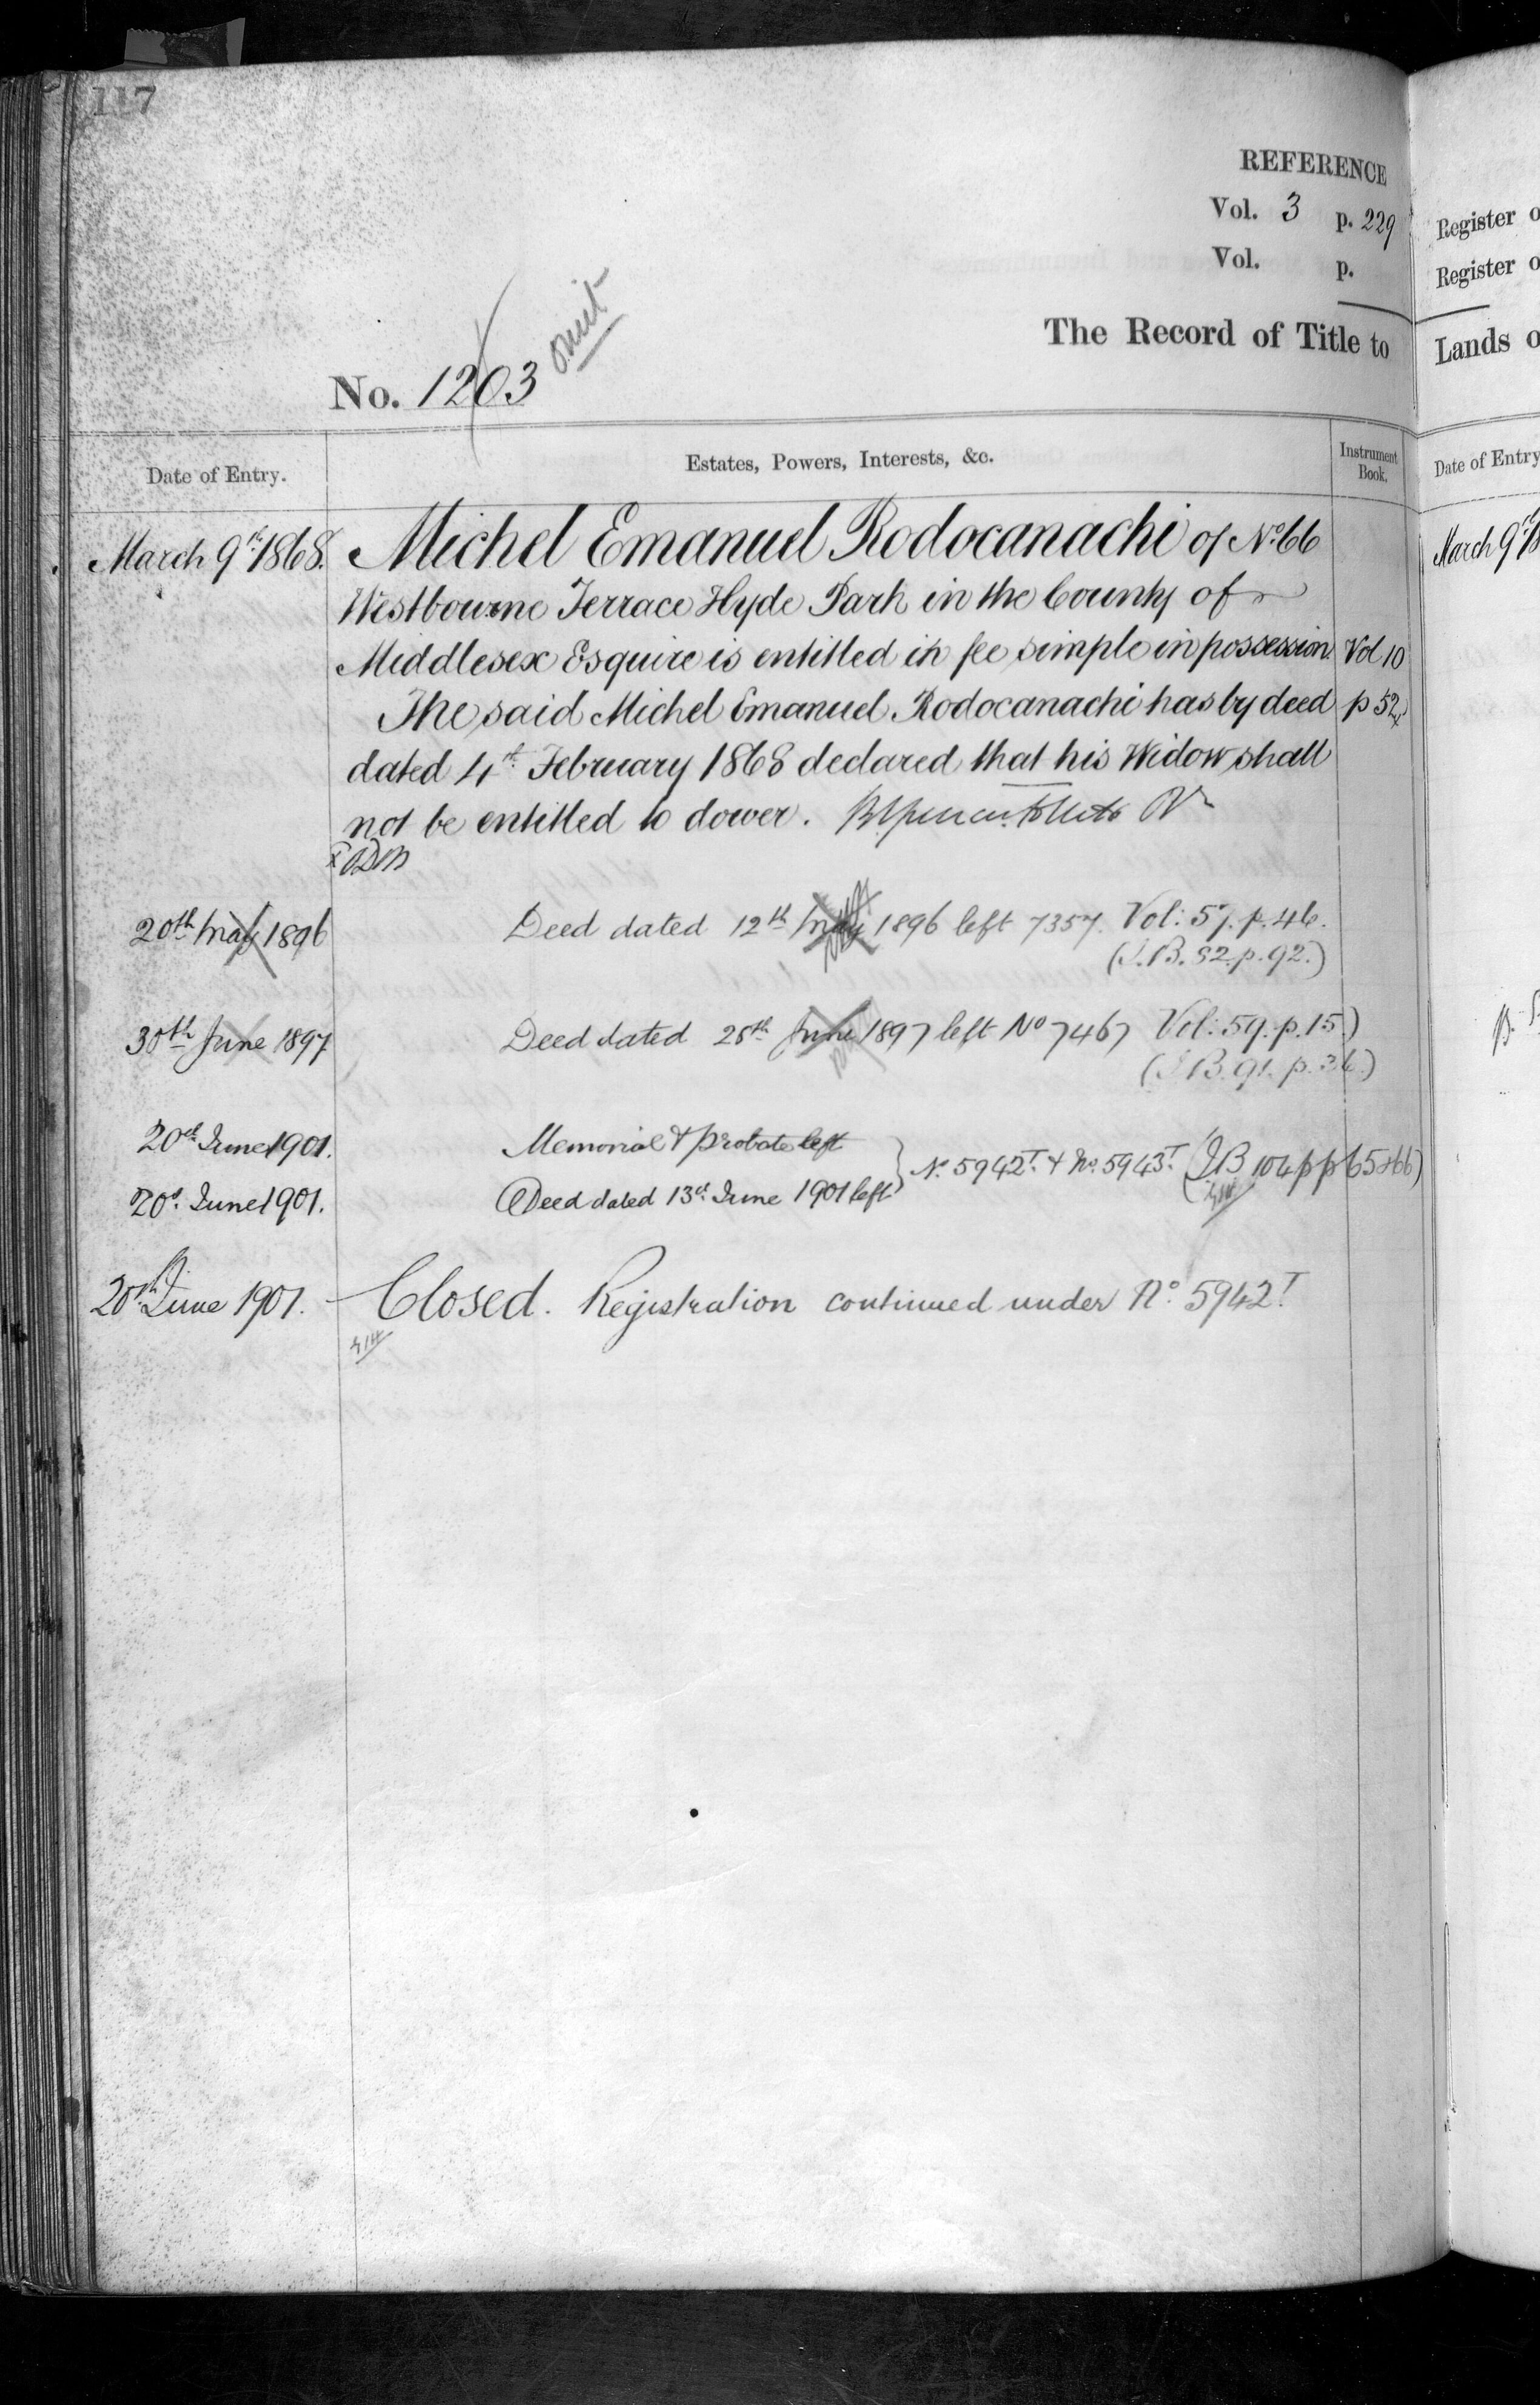 117
REFERENCE
Vol. 3 p. 229
Vol. p.
The Record of Title to
No. 1203 omit
Date of Entry. Estates, Powers, Interests, &c. Instrument Book.
March 9th 1868. Michel Emanuel Rodocanachi of No 66
Westbourne Terrace Hyde Park in the County of
Middlesex Esquire is entitled in fee simple in possession. Vol 10
The said Michel Emanuel Rodocanachi has by deed p 52
dated 4th February 1868 declared that his Widow shall
not be entitled to dower.
20th May 1896 Deed dated 12th May 1896 left 7357. Vol: 57. p. 46.
(I.B. 82. p. 92.)
30th June 1897 Deed dated 28th June 1897 left No 7467 Vol: 59. p. 15.)
(I.B. 91. p. 36.)
20th June 1901. Memorial & probate left
20th June 1901. Deed dated 13th June 1901 left } No. 5942T. & No. 5943T. (IB 104 pp 65 & 66)
20th June 1901. Closed. Registration continued under No. 5942T
Register o
Register o
Lands o
Date of Entry
March 9th 18